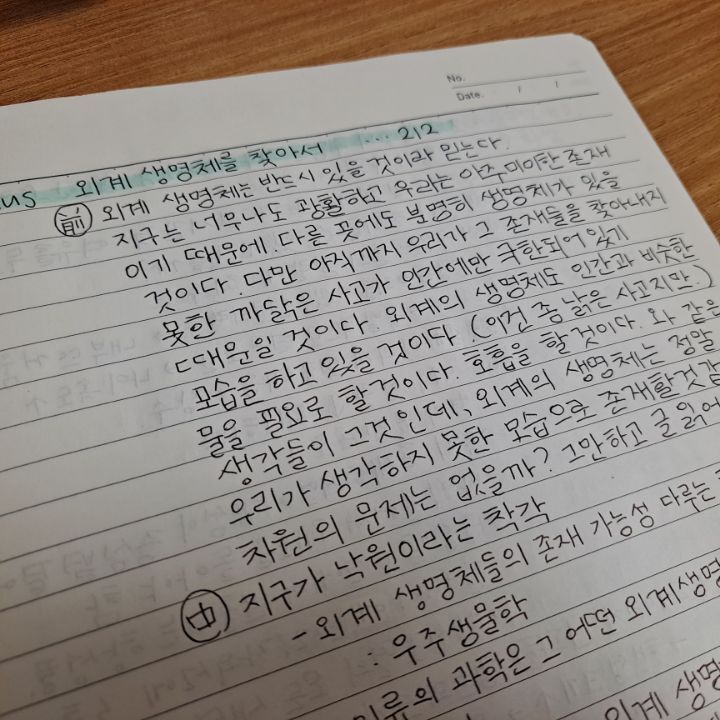 No.
Date. / /
us 외계 생명체를 찾아서 ... 212
前 외계 생명체는 반드시 있을 것이라 믿는다.
지구는 너무나도 광활하고 우리는 아주 미미한 존재
이기 때문에. 다른 곳에도 분명히 생명체가 있을
것이다. 다만 아직까지 우리가 그 존재들을 찾아내지
못한 까닭은 사고가 인간에만 국한되어 있기
때문일 것이다. 외계의 생명체도 인간과 비슷한
모습을 하고 있을 것이다. (이건 좀 낡은 사고지만.)
물을 필요로 할것이다. 호흡을 할 것이다. 와 같은
생각들이 그것인데, 외계의 생명체는 정말
우리가 생각하지 못한 모습으로 존재할것같
차원의 문제는 없을까? 그만하고 글 읽어
中 지구가 낙원이라는 착각
- 외계 생명체들의 존재 가능성 다루는
: 우주생물학
인류의 과학은 그 어떤 외계생명
외계 생명